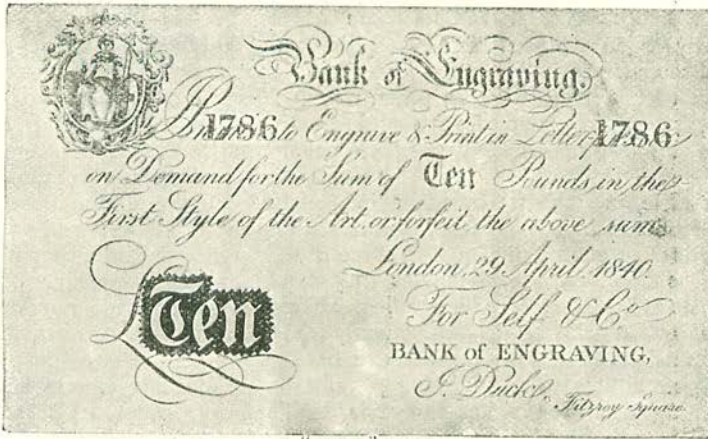 Bank of Engraving.
1786 to Engrave & Print in 1786
on Demand for the Sum of Ten Pounds in the
First Style of the Art, or forfeit the above sum.
London, 29 April, 1840.
For Self & Co.
£Ten
BANK of ENGRAVING,
Fitzroy Square.